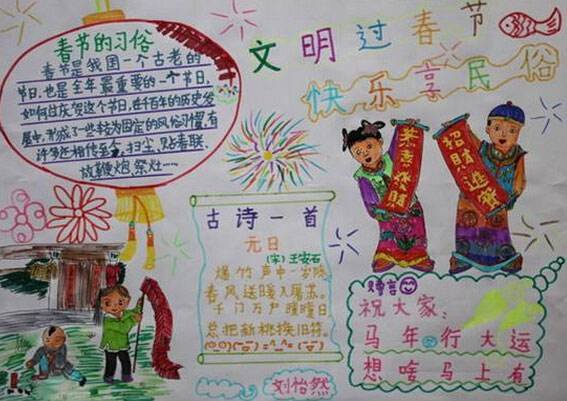 文明过春节
快乐享民俗
春节的习俗
春节是我国一个古老的
节日,也是全年最重要的一个节日,
如何过庆贺这个节日,在千百年的历史发
展中,形成了一些较为固定的风俗习惯,有
许多还相传至今,扫尘,贴春联,
放鞭炮,祭灶……
恭喜發財
招財進寶
古诗一首
元日
(宋)王安石
爆竹声中一岁除
春风送暖入屠苏。
千门万户曈曈日
总把新桃换旧符。
赠言
祝大家:
马年行大运
想啥马上有
刘怡然